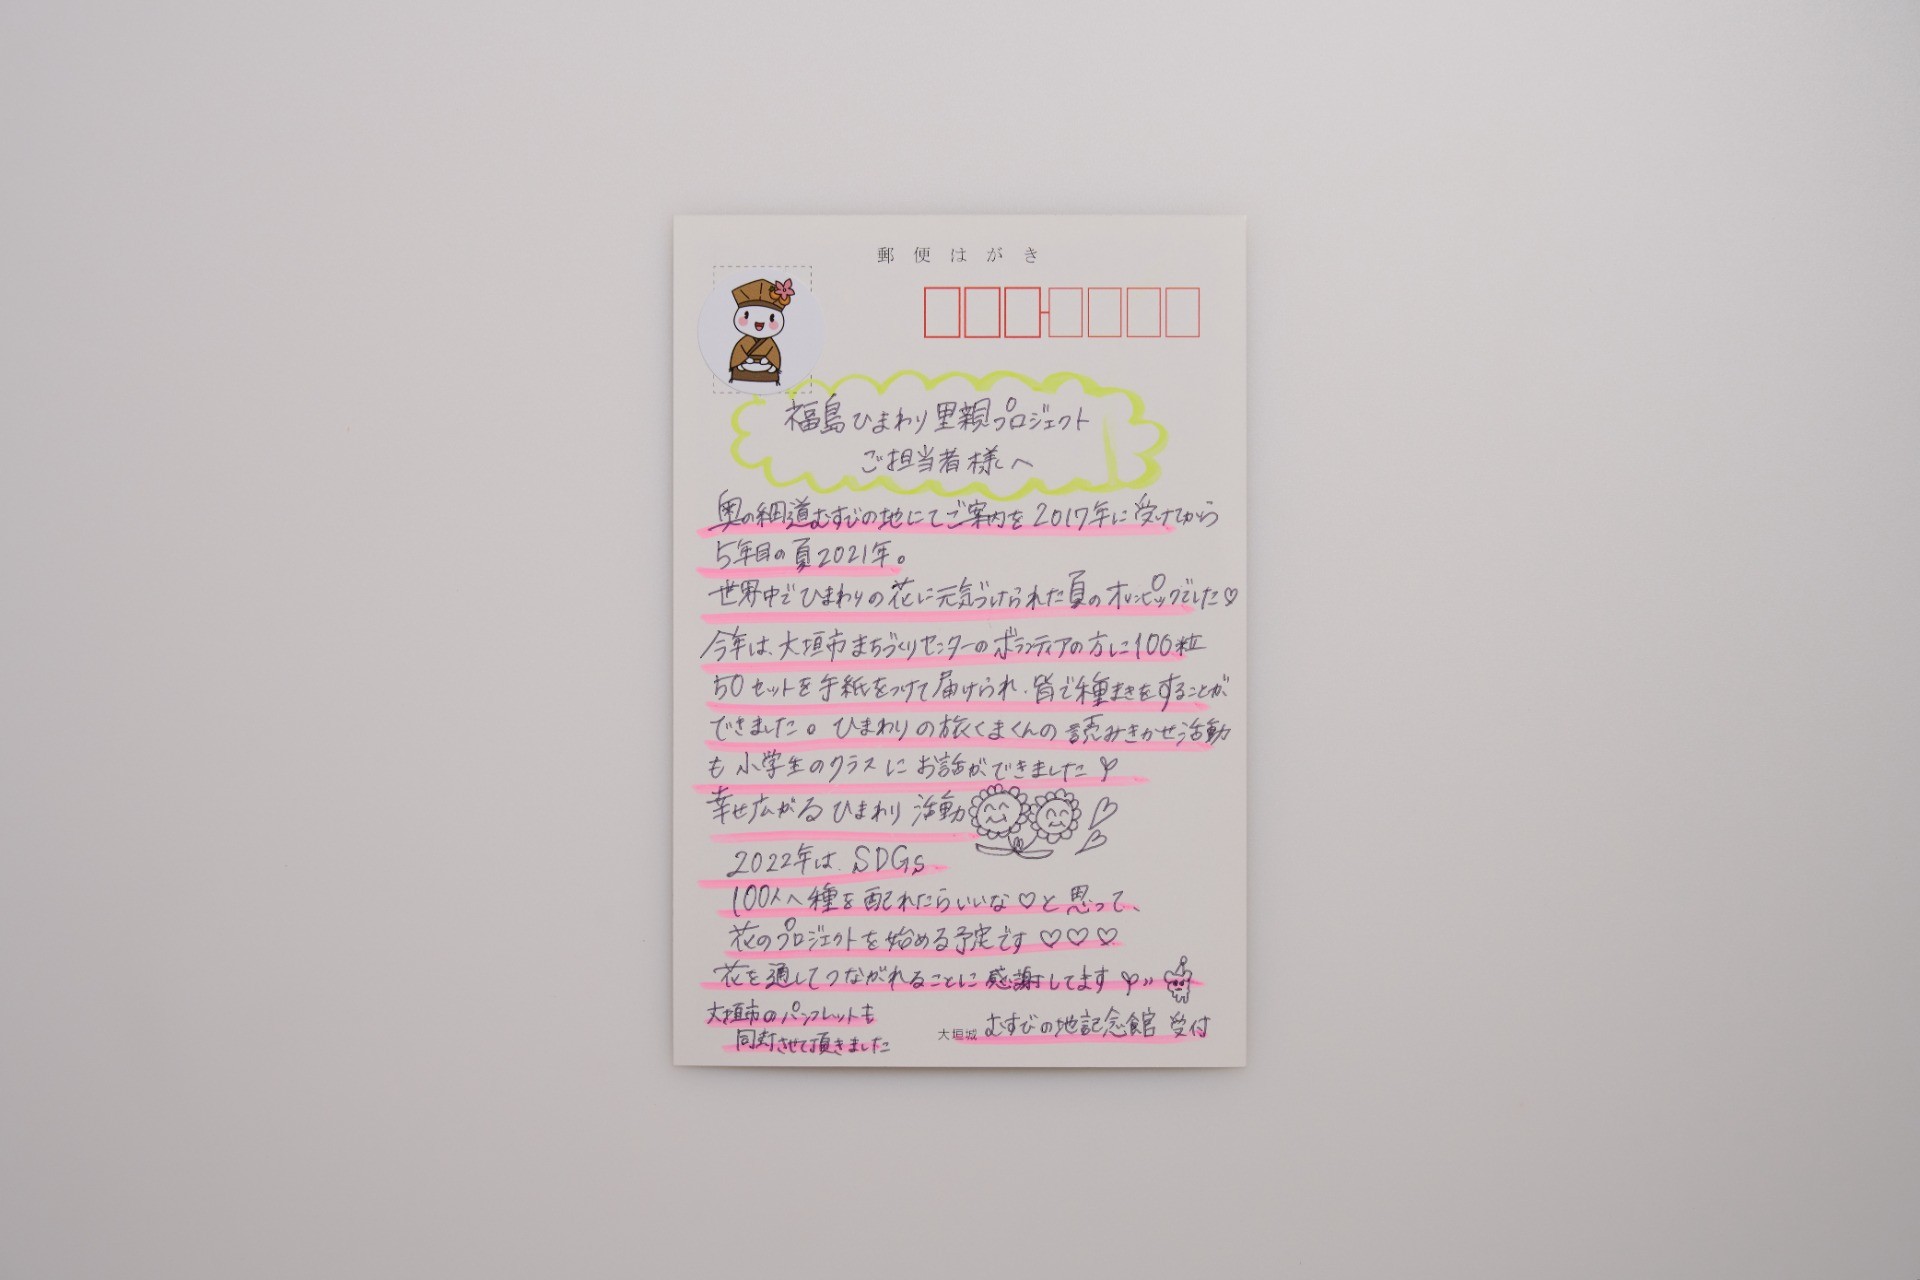 郵便はがき
福島ひまわり里親プロジェクト
ご担当者様へ
奥の細道むすびの地にてご案内を2017年に受けてから
5年目の夏2021年。
世界中でひまわりの花に元気づけられた夏のオリンピックでした♡
今年は、大垣市まちづくりセンターのボランティアの方に100粒
50セットを手紙をつけて届けられ、皆で種まきをすることが
できました。ひまわりの旅くまくんの読みきかせ活動
も小学生のクラスにお話ができました
幸せ広がるひまわり活動
2022年は、SDGs
100人へ種を配れたらいいな♡と思って、
花のプロジェクトを始める予定です♡♡♡
花を通してつながれることに感謝してます
大垣市のパンフレットも
同封させて頂きました
大垣城 むすびの地記念館 受付